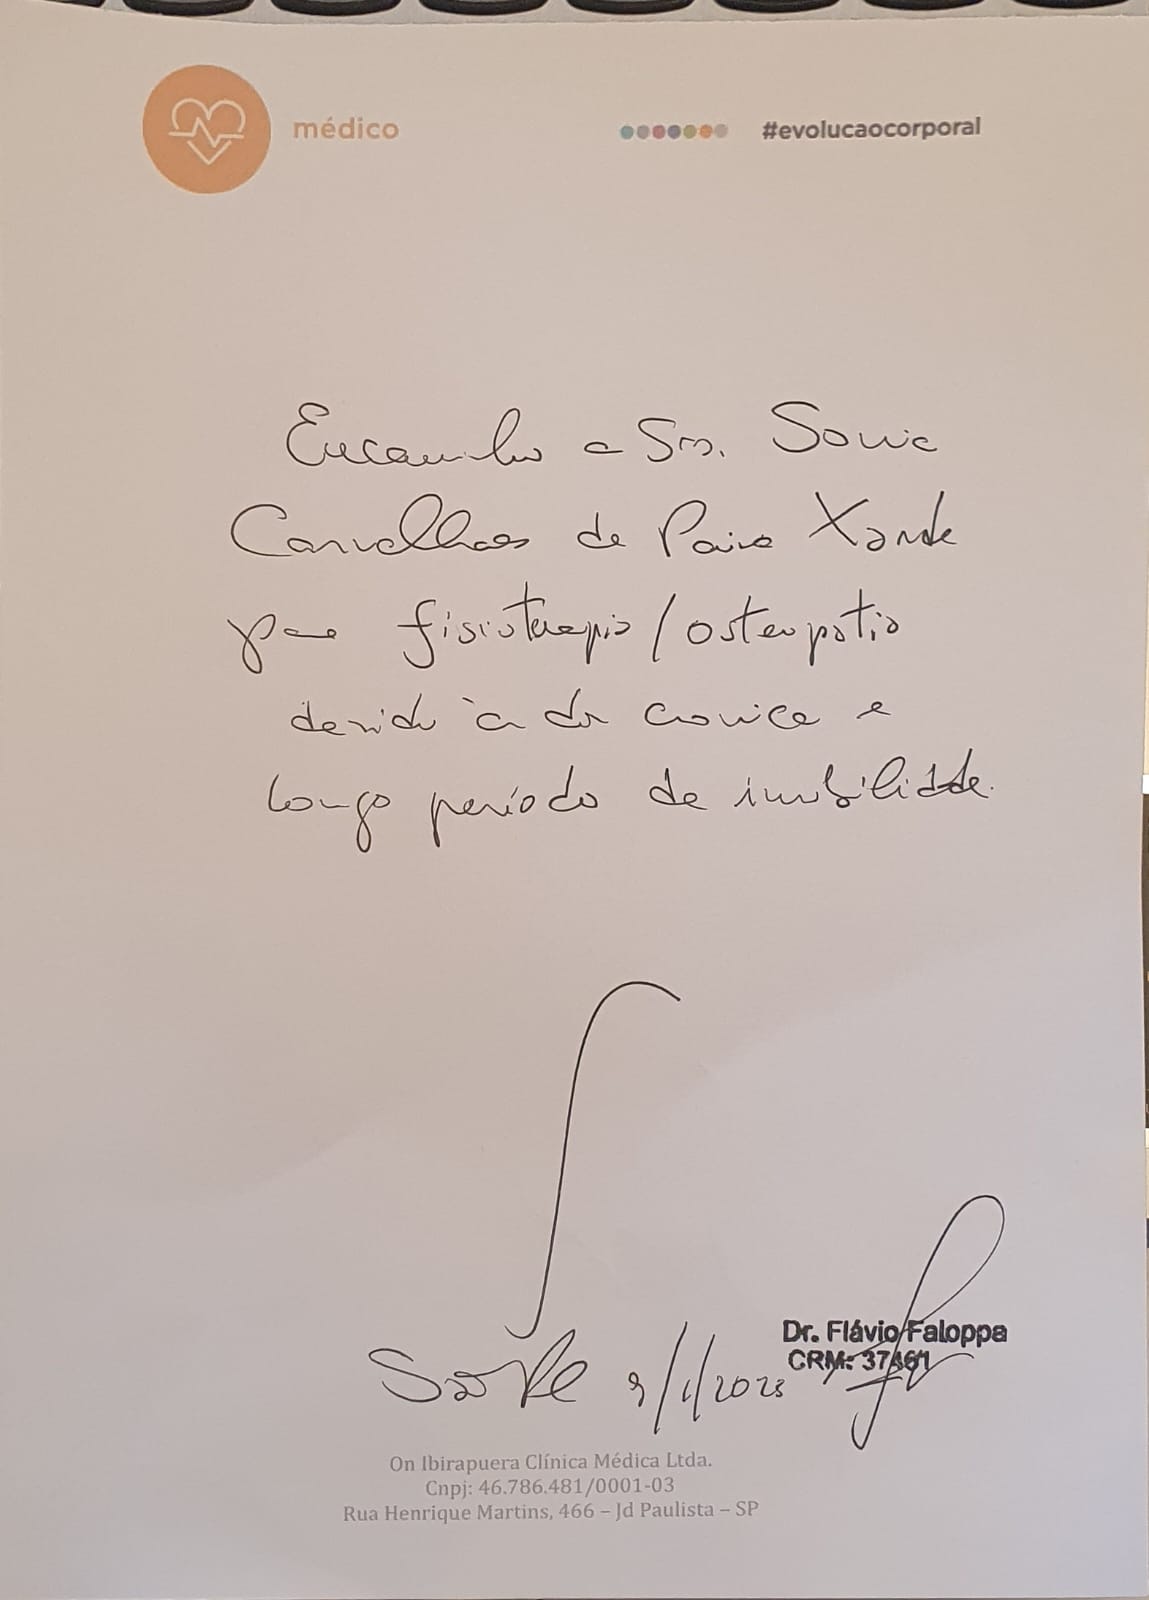 médico
#evolucaocorporal
Encaminho a Sra. Sonia
Carvalhaes de Paiva Xande
para fisioterapia/osteopatia
devido à dor cronica e
longo período de imobilidade.
São Paulo 9/1/2023
Dr. Flávio Faloppa
CRM:
On Ibirapuera Clínica Médica Ltda.
Cnpj: 46.786.481/0001-03
Rua Henrique Martins, 466 – Jd Paulista – SP